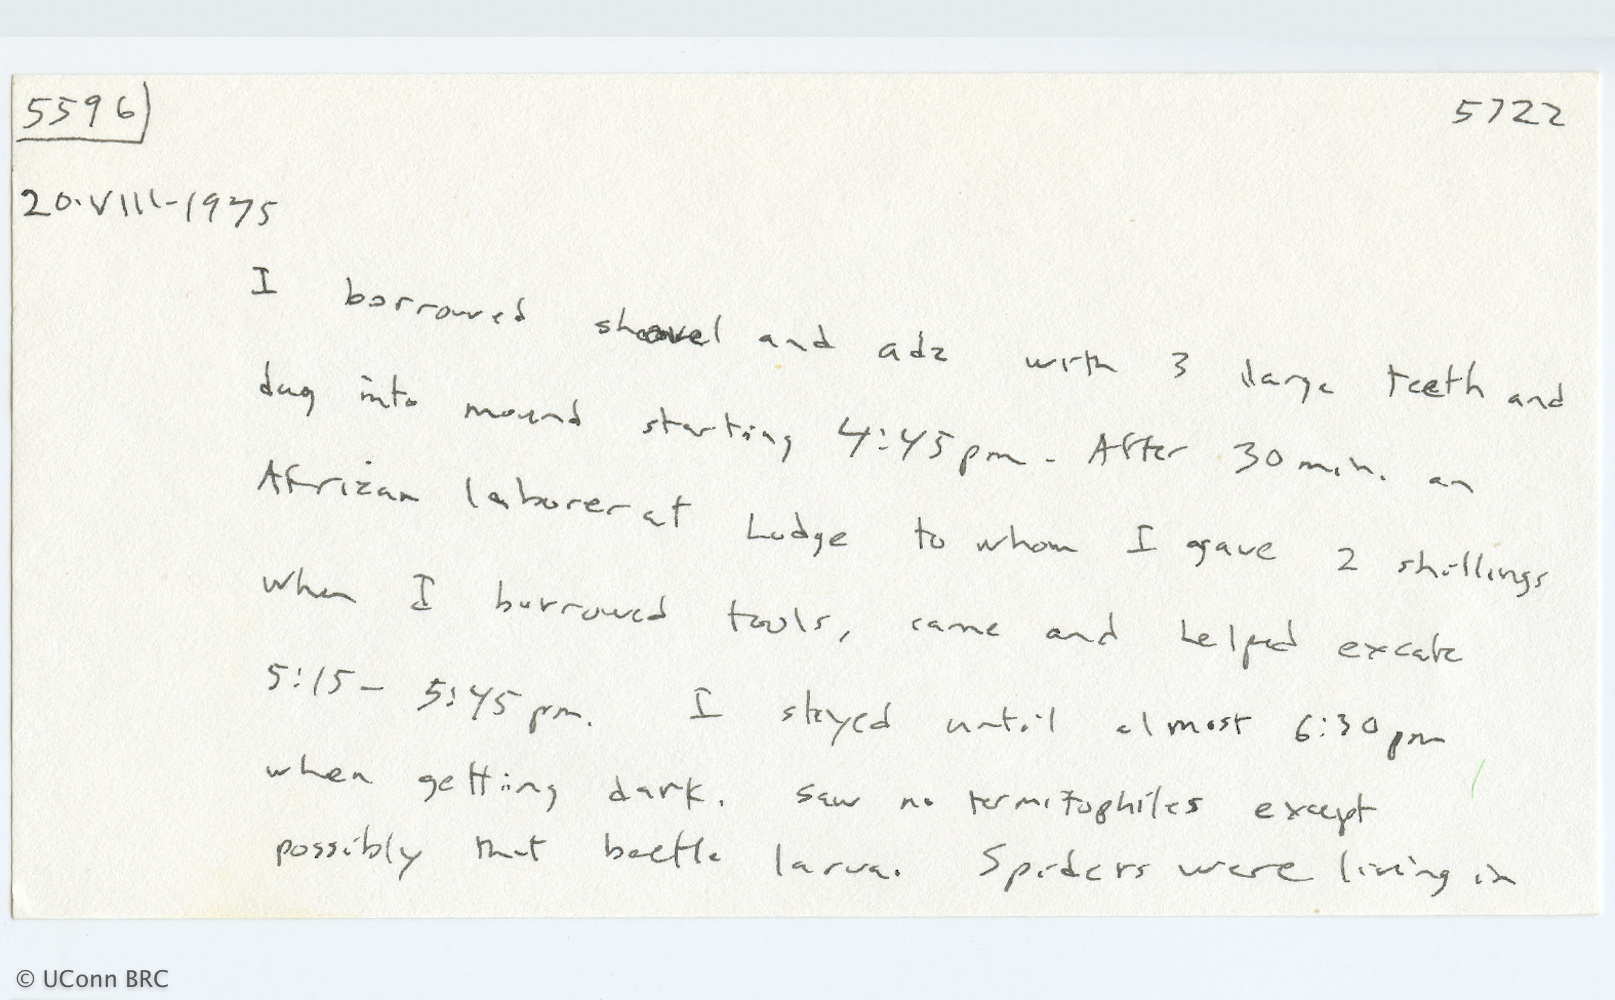 5596 5722
20·VIII-1975
I borrowed shovel and adz with 3 large teeth and
dug into mound starting 4:45 pm. After 30 min. an
African laborer at Lodge to whom I gave 2 shillings
when I borrowed tools, came and helped excate
5:15 - 5:45 pm. I stayed until almost 6:30 pm
when getting dark. Saw no termitophiles except
possibly that beetle larva. Spiders were living in
© UConn BRC